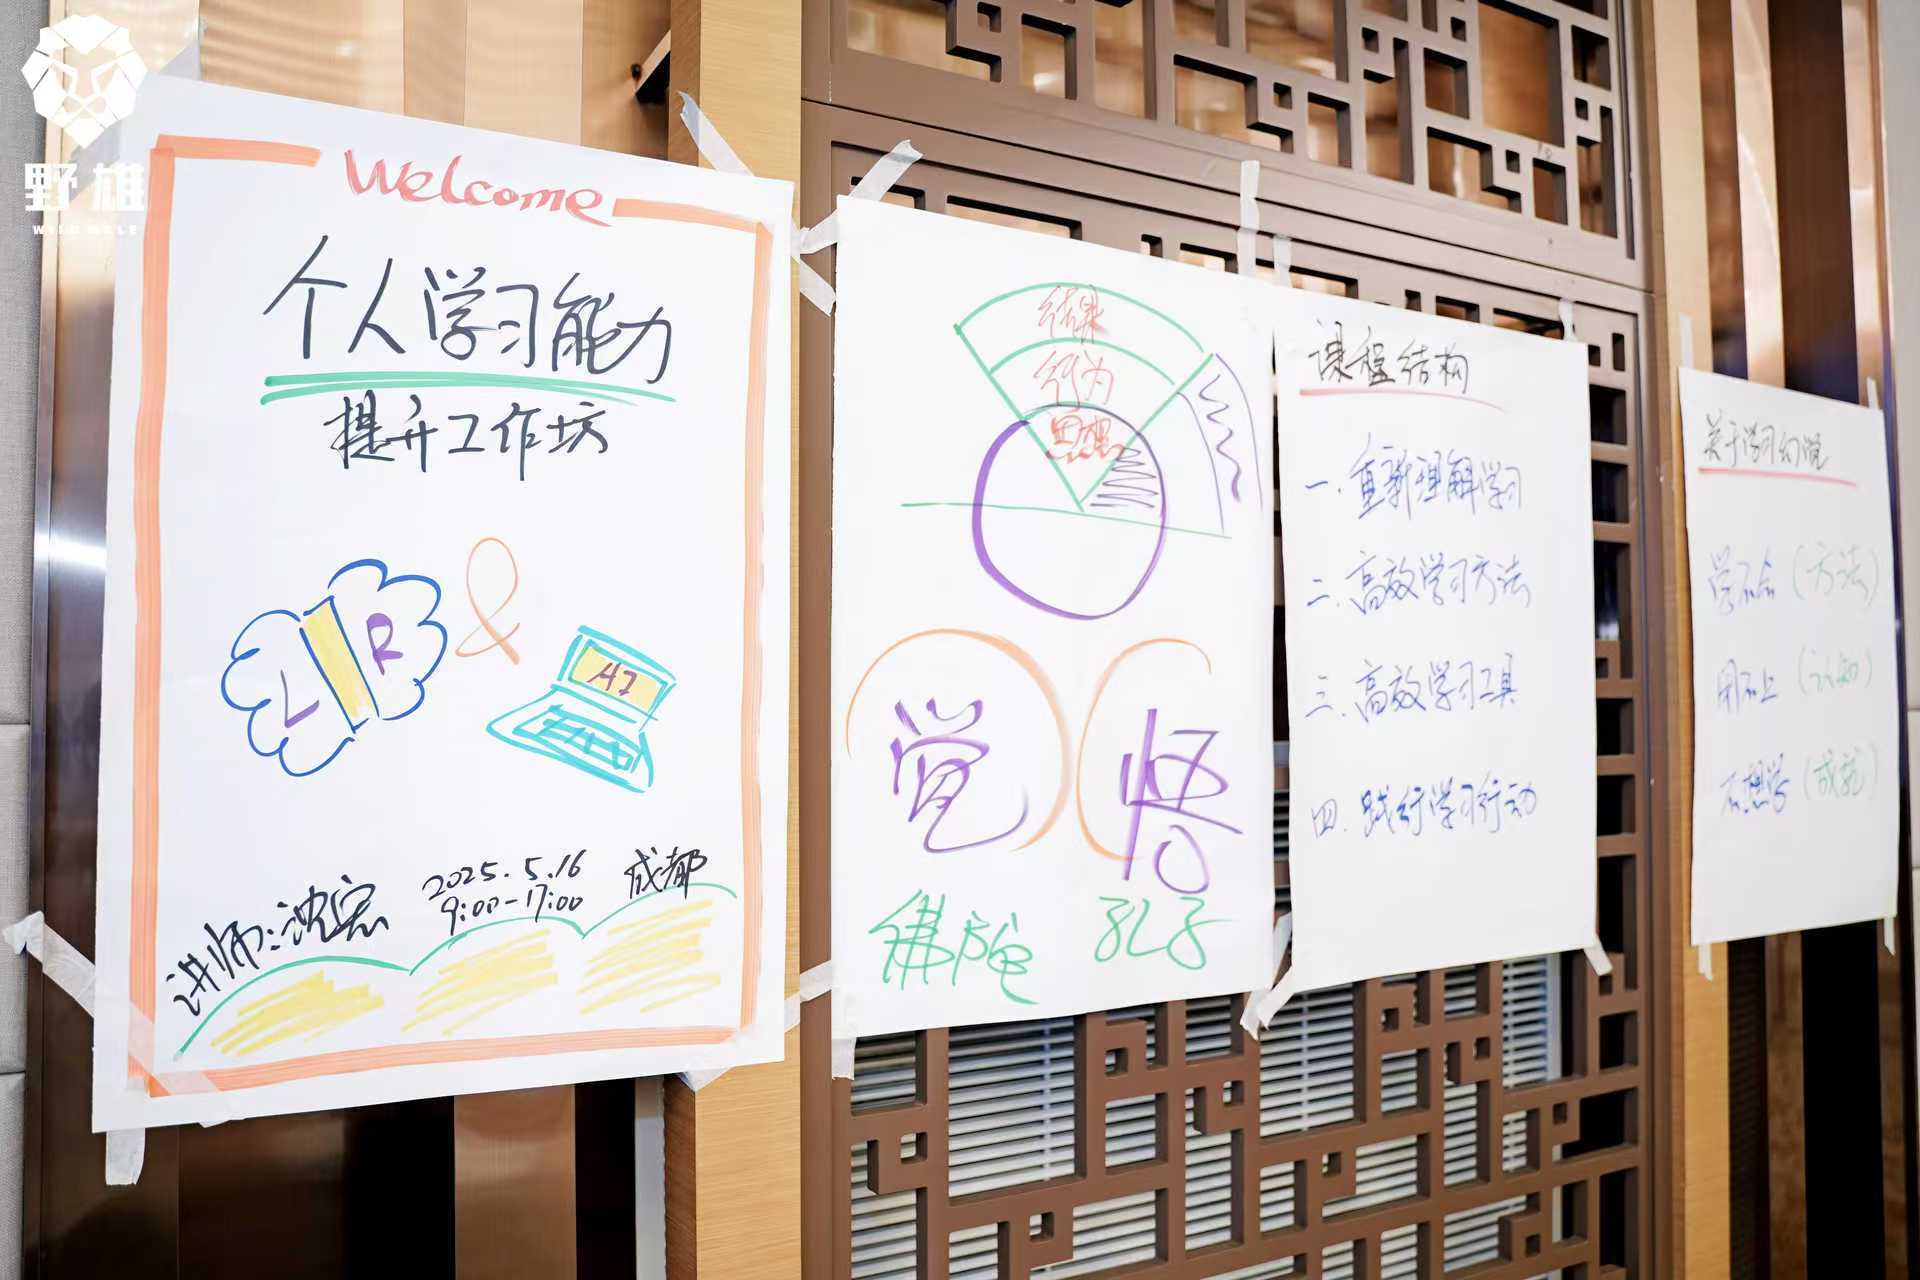 野雄
WILD MALE
Welcome
个人学习能力
提升工作坊
L R & AI
讲师:沈宏
2025.5.16 成都
9:00-17:00
结果
行为
思想
觉 悟
佛陀 孔子
课程结构
一.重新理解学习
二.高效学习方法
三.高效学习工具
四.践行学习行动
关于学习幻觉
学不会(方法)
用不上(认知)
不想学(成就)